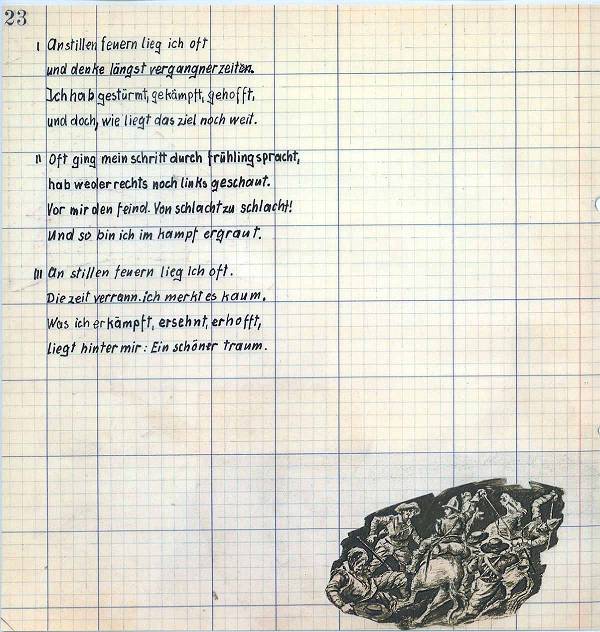 23
I Anstillen feuern lieg ich oft
und denke längst vergangner zeiten.
Ich hab gestürmt, gekämpft, gehofft,
und doch, wie liegt das ziel noch weit.
II Oft ging mein schritt durch frühlingspracht,
hab weder rechts noch links geschaut.
Vor mir den feind. Von schlacht zu schlacht!
Und so bin ich im kampf ergraut.
III An stillen feuern lieg ich oft.
Die zeit verrann. ich merkt es kaum.
Was ich erkämpft, ersehnt, erhofft,
liegt hinter mir: Ein schöner traum.